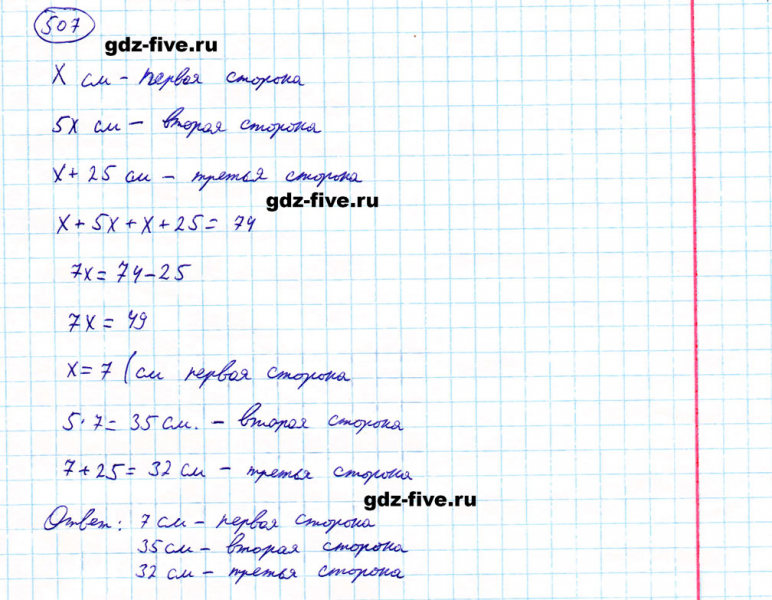 507
gdz-five.ru
x см – первая сторона
5x см – вторая сторона
x + 25 см – третья сторона
gdz-five.ru
x + 5x + x + 25 = 74
7x = 74 – 25
7x = 49
x = 7 (см первая сторона
5 · 7 = 35 см. – вторая сторона
7 + 25 = 32 см – третья сторона
gdz-five.ru
Ответ: 7 см – первая сторона
35 см – вторая сторона
32 см – третья сторона